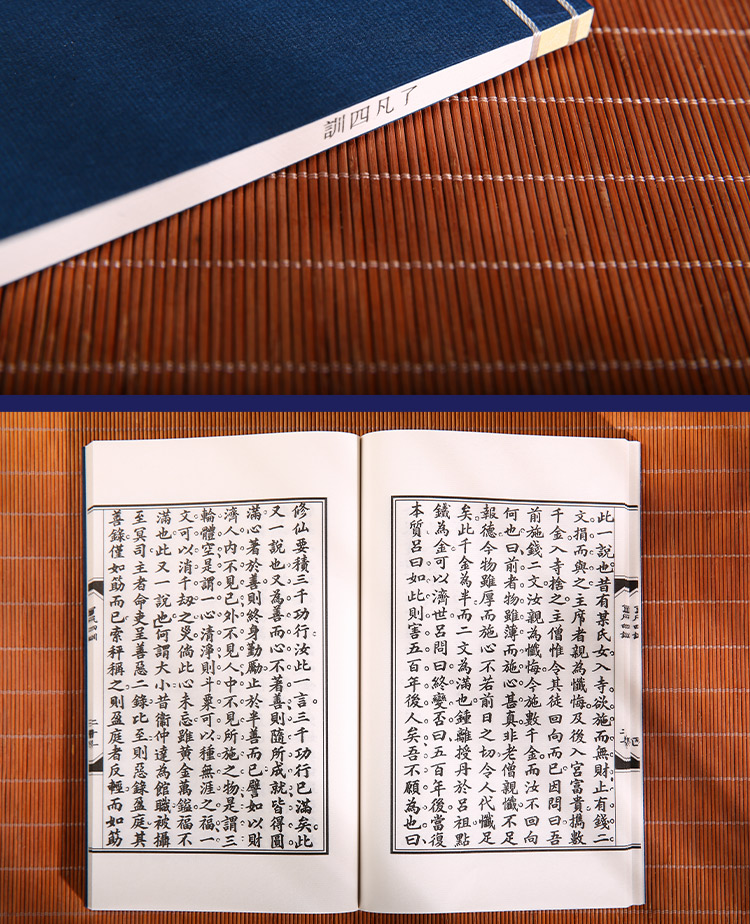 了凡四訓
此一說也昔有某氏女入寺欲施而無財止有錢二
文捐而與之主席者親為懺悔及後入宮富貴攜數
千金入寺捨之主僧惟令其徒回向而已因問曰吾
前施錢二文汝親為懺悔今施數千金而汝不回向
何也曰前者物雖薄而施心甚真非老僧親懺不足
報德今物雖厚而施心不若前日之切令人代懺足
矣此千金為半而二文為滿也鍾離授丹於呂祖點
鐵為金可以濟世呂問曰終變否曰五百年後當復
本質呂曰如此則害五百年後人矣吾不願為也曰
修仙要積三千功行汝此一言三千功行已滿矣此
又一說也又為善而心不著善則隨所成就皆得圓
滿心著於善則終身勤勵止於半善而已譬如以財
濟人內不見己外不見人中不見所施之物是謂三
輪體空是謂一心清淨則斗粟可以種無涯之福一
文可以消千劫之災倘此心未忘雖黃金萬鎰福不
滿也此又一說也何謂大小昔衞仲達為館職被攝
至冥司主者命吏呈善惡二錄比至則惡錄盈庭其
善錄僅如筯而已索秤稱之則盈庭者反輕而如筯